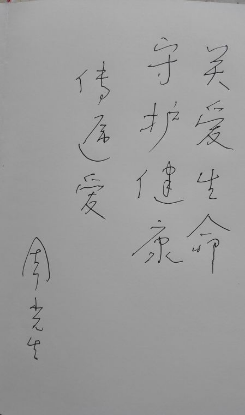 关爱生命
守护健康
传递爱
周光生